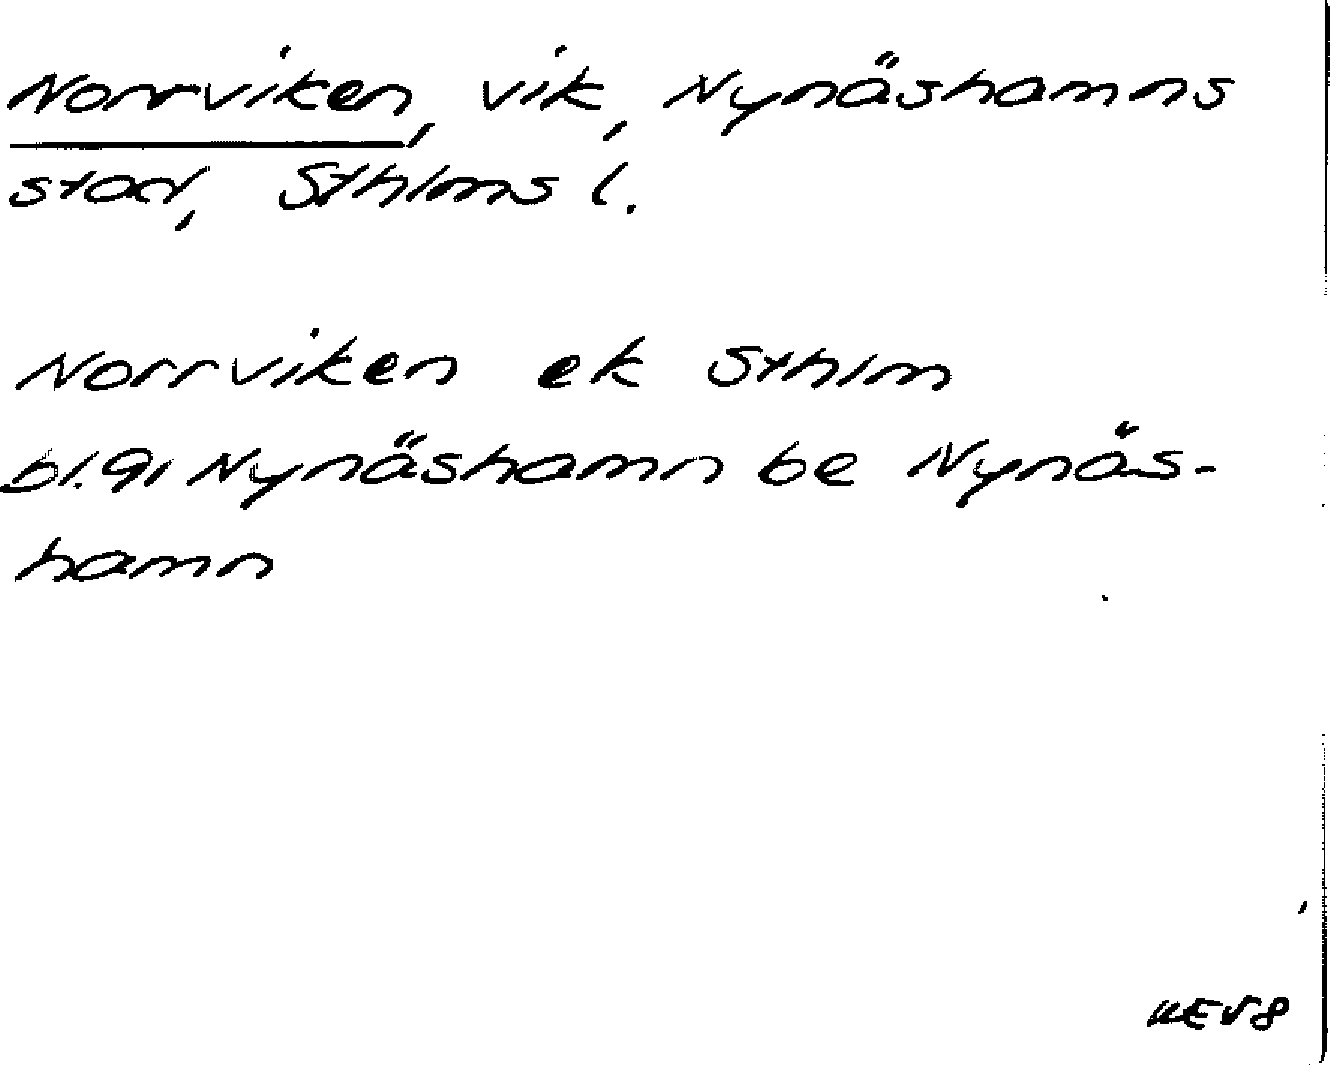 Norrviken, vik, Nynäshamns
stad, Sthlms l.
Norrviken ek Sthlm
bl. 91 Nynäshamn be Nynäs-
hamn